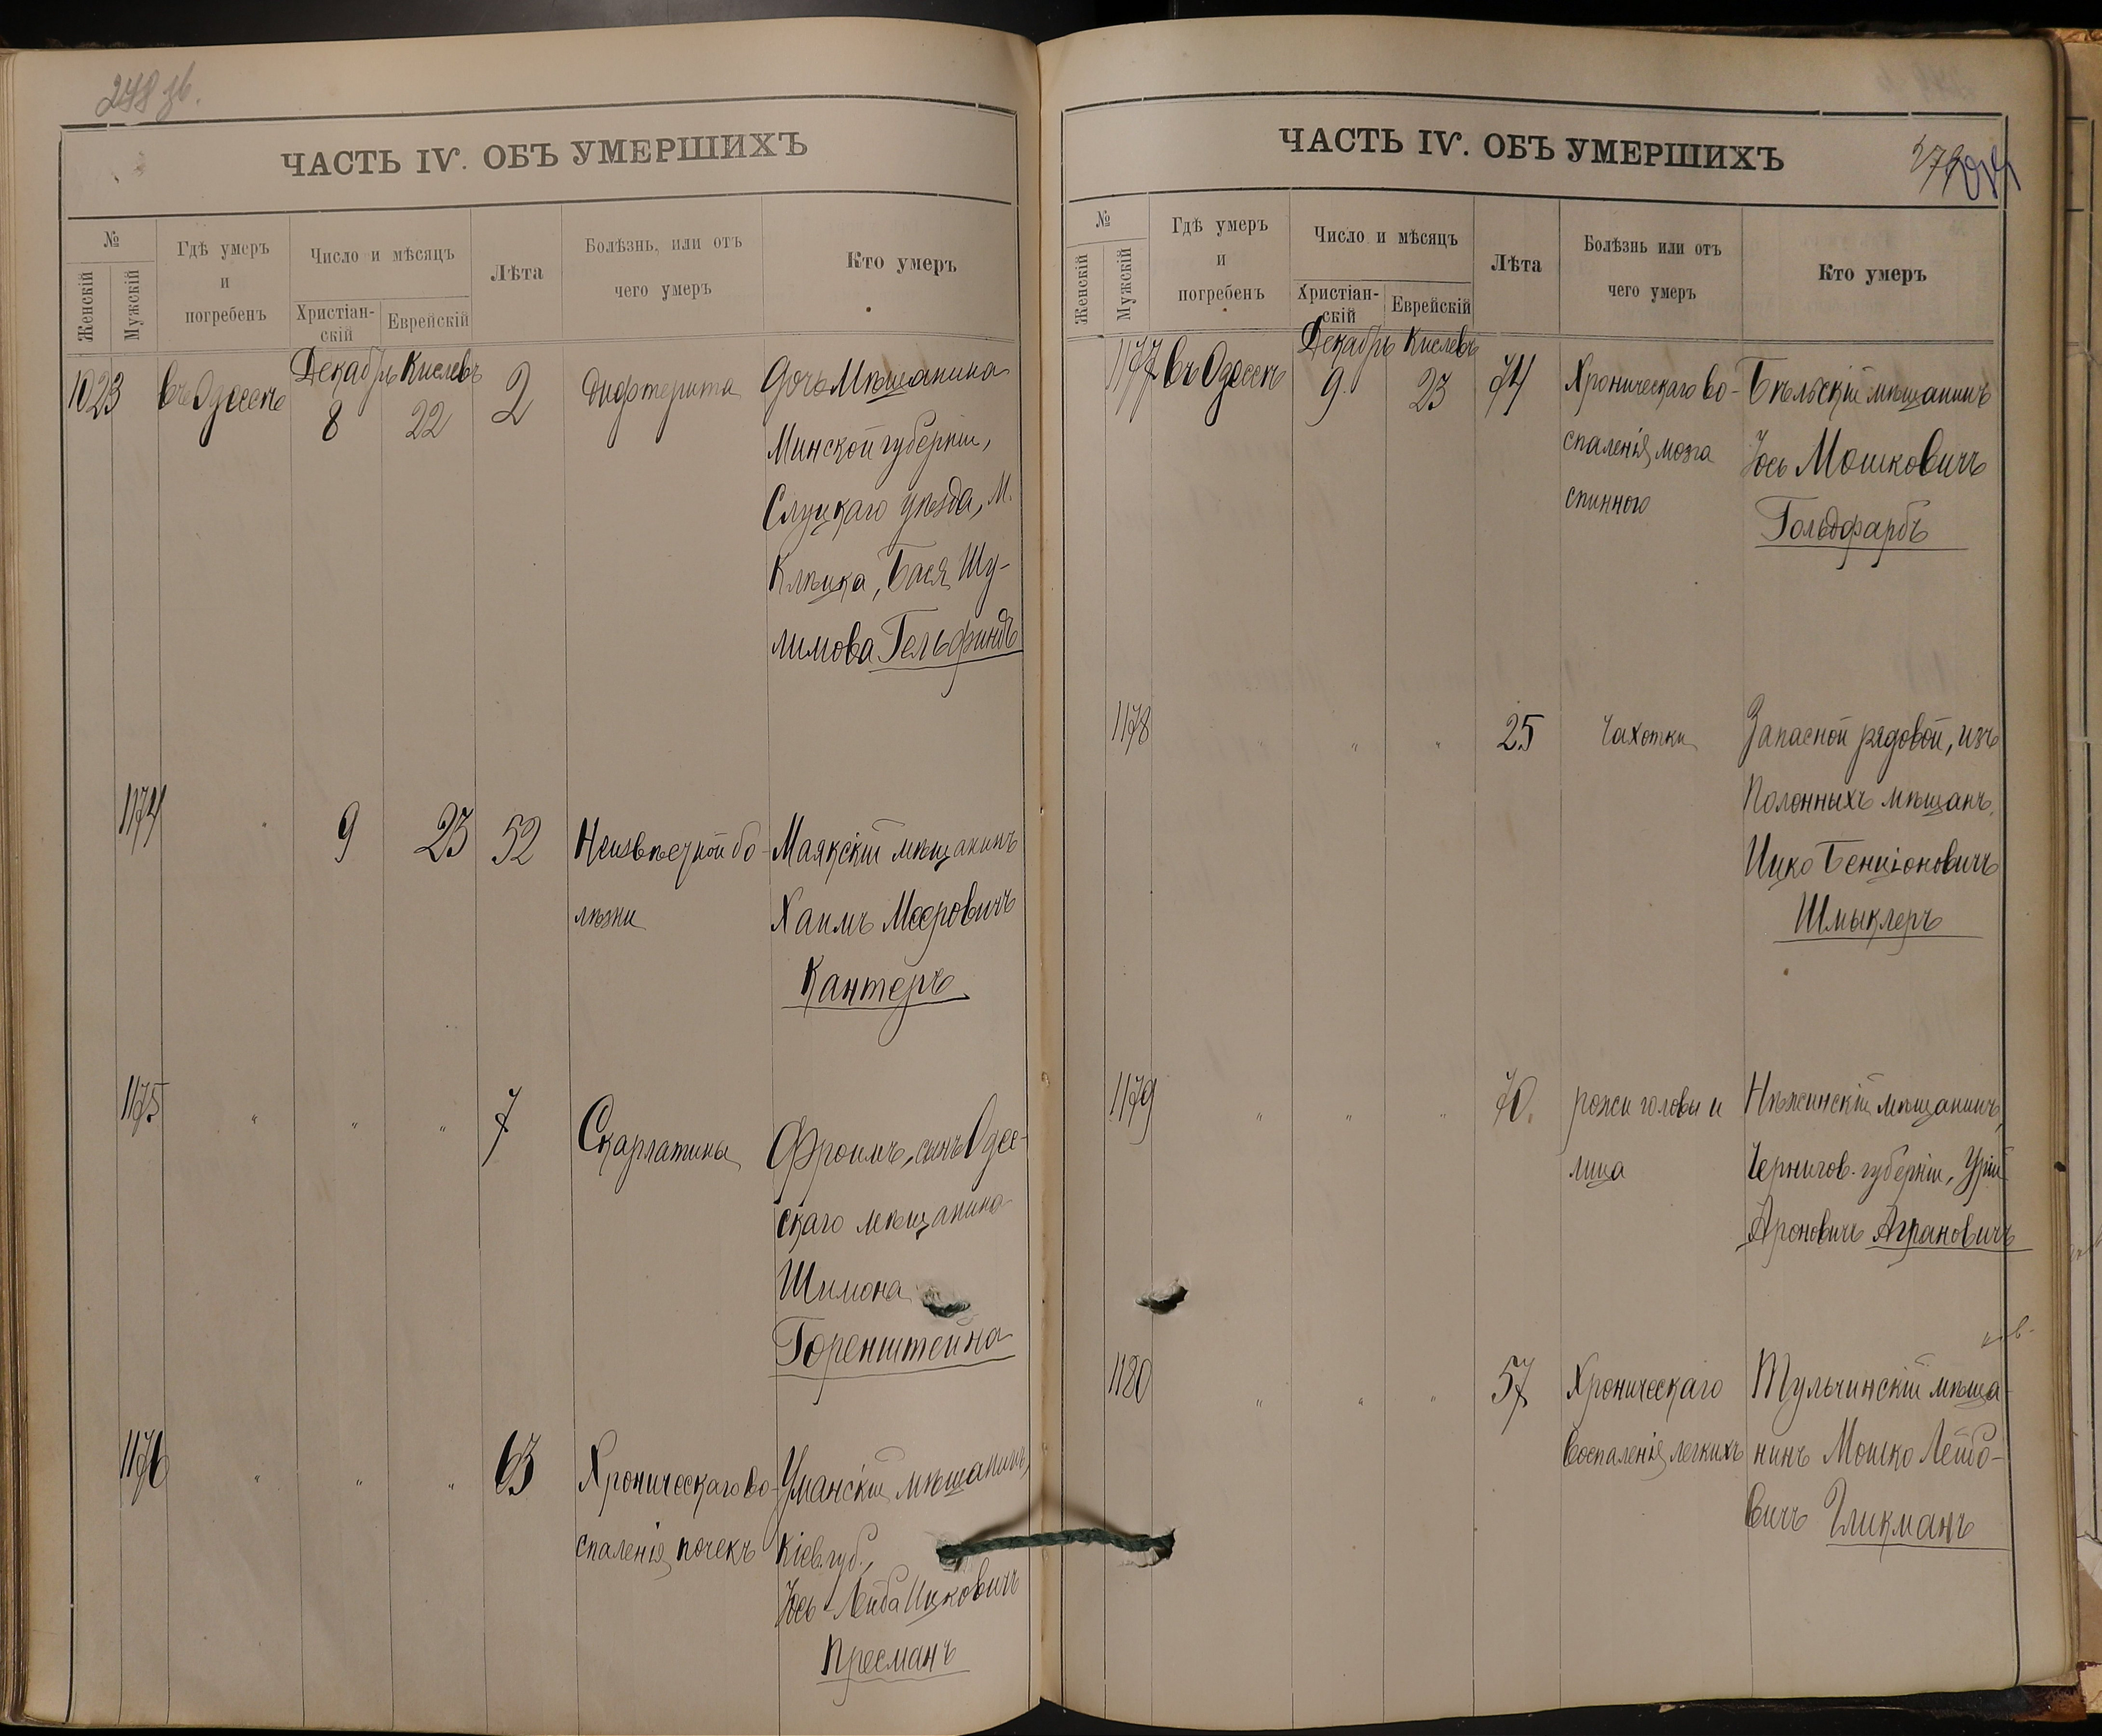 278 зв.
ЧАСТЬ IV. ОБЪ УМЕРШИХЪ
№
Женскій
Мужскій
Гдѣ умеръ
и
погребенъ
Число и мѣсяцъ
Христіан-
скій
Еврейскій
Лѣта
Болѣзнь, или отъ
чего умеръ
Кто умеръ
1023 въ Одессѣ Декабрь 8 Кислевъ 22 2 дифтерита дочь мѣщанина
Минской губерніи,
Слуцкаго уѣзда, м.
Клѣцка, Бася Шу-
лимова Гельфандъ
1174 " 9 23 52 Неизвѣстной бо- Маякскій мѣщанинъ
лѣзни Хаимъ Мееровичъ
Кантеръ
1175 " " " 7 Скарлатины Фроимъ, сынъ Одес-
скаго мѣщанина
Шимона
Горенштейна
1176 " " " 63 Хроническаго во- Уманскій мѣщанинъ,
спаленія почекъ Кіев. губ.,
Іось-Лейба Ицковичъ
Пресманъ
ЧАСТЬ IV. ОБЪ УМЕРШИХЪ
279
№
Женскій
Мужскій
Гдѣ умеръ
и
погребенъ
Число и мѣсяцъ
Христіан-
скій
Еврейскій
Лѣта
Болѣзнь или отъ
чего умеръ
Кто умеръ
1177 въ Одессѣ Декабрь 9 Кислевъ 23 74 Хроническаго во- Бѣльскій мѣщанинъ
спаленія мозга Іось Мошковичъ
спинного Гольдфарбъ
1178 " " " 25 Чахотки Запасной рядовой, изъ
Полонныхъ мѣщанъ,
Ицко Бенціоновичъ
Шмыклеръ
1179 " " " 70. рожи головы и Нѣжинскій мѣщанинъ,
лица Чернигов. губерніи, Урій
Ароновичъ Аграновичъ
1180 " " " 57 Хроническаго Тульчинскій мѣща-
воспаленія легкихъ нинъ Мошко Лейбо-
вичъ Гликманъ